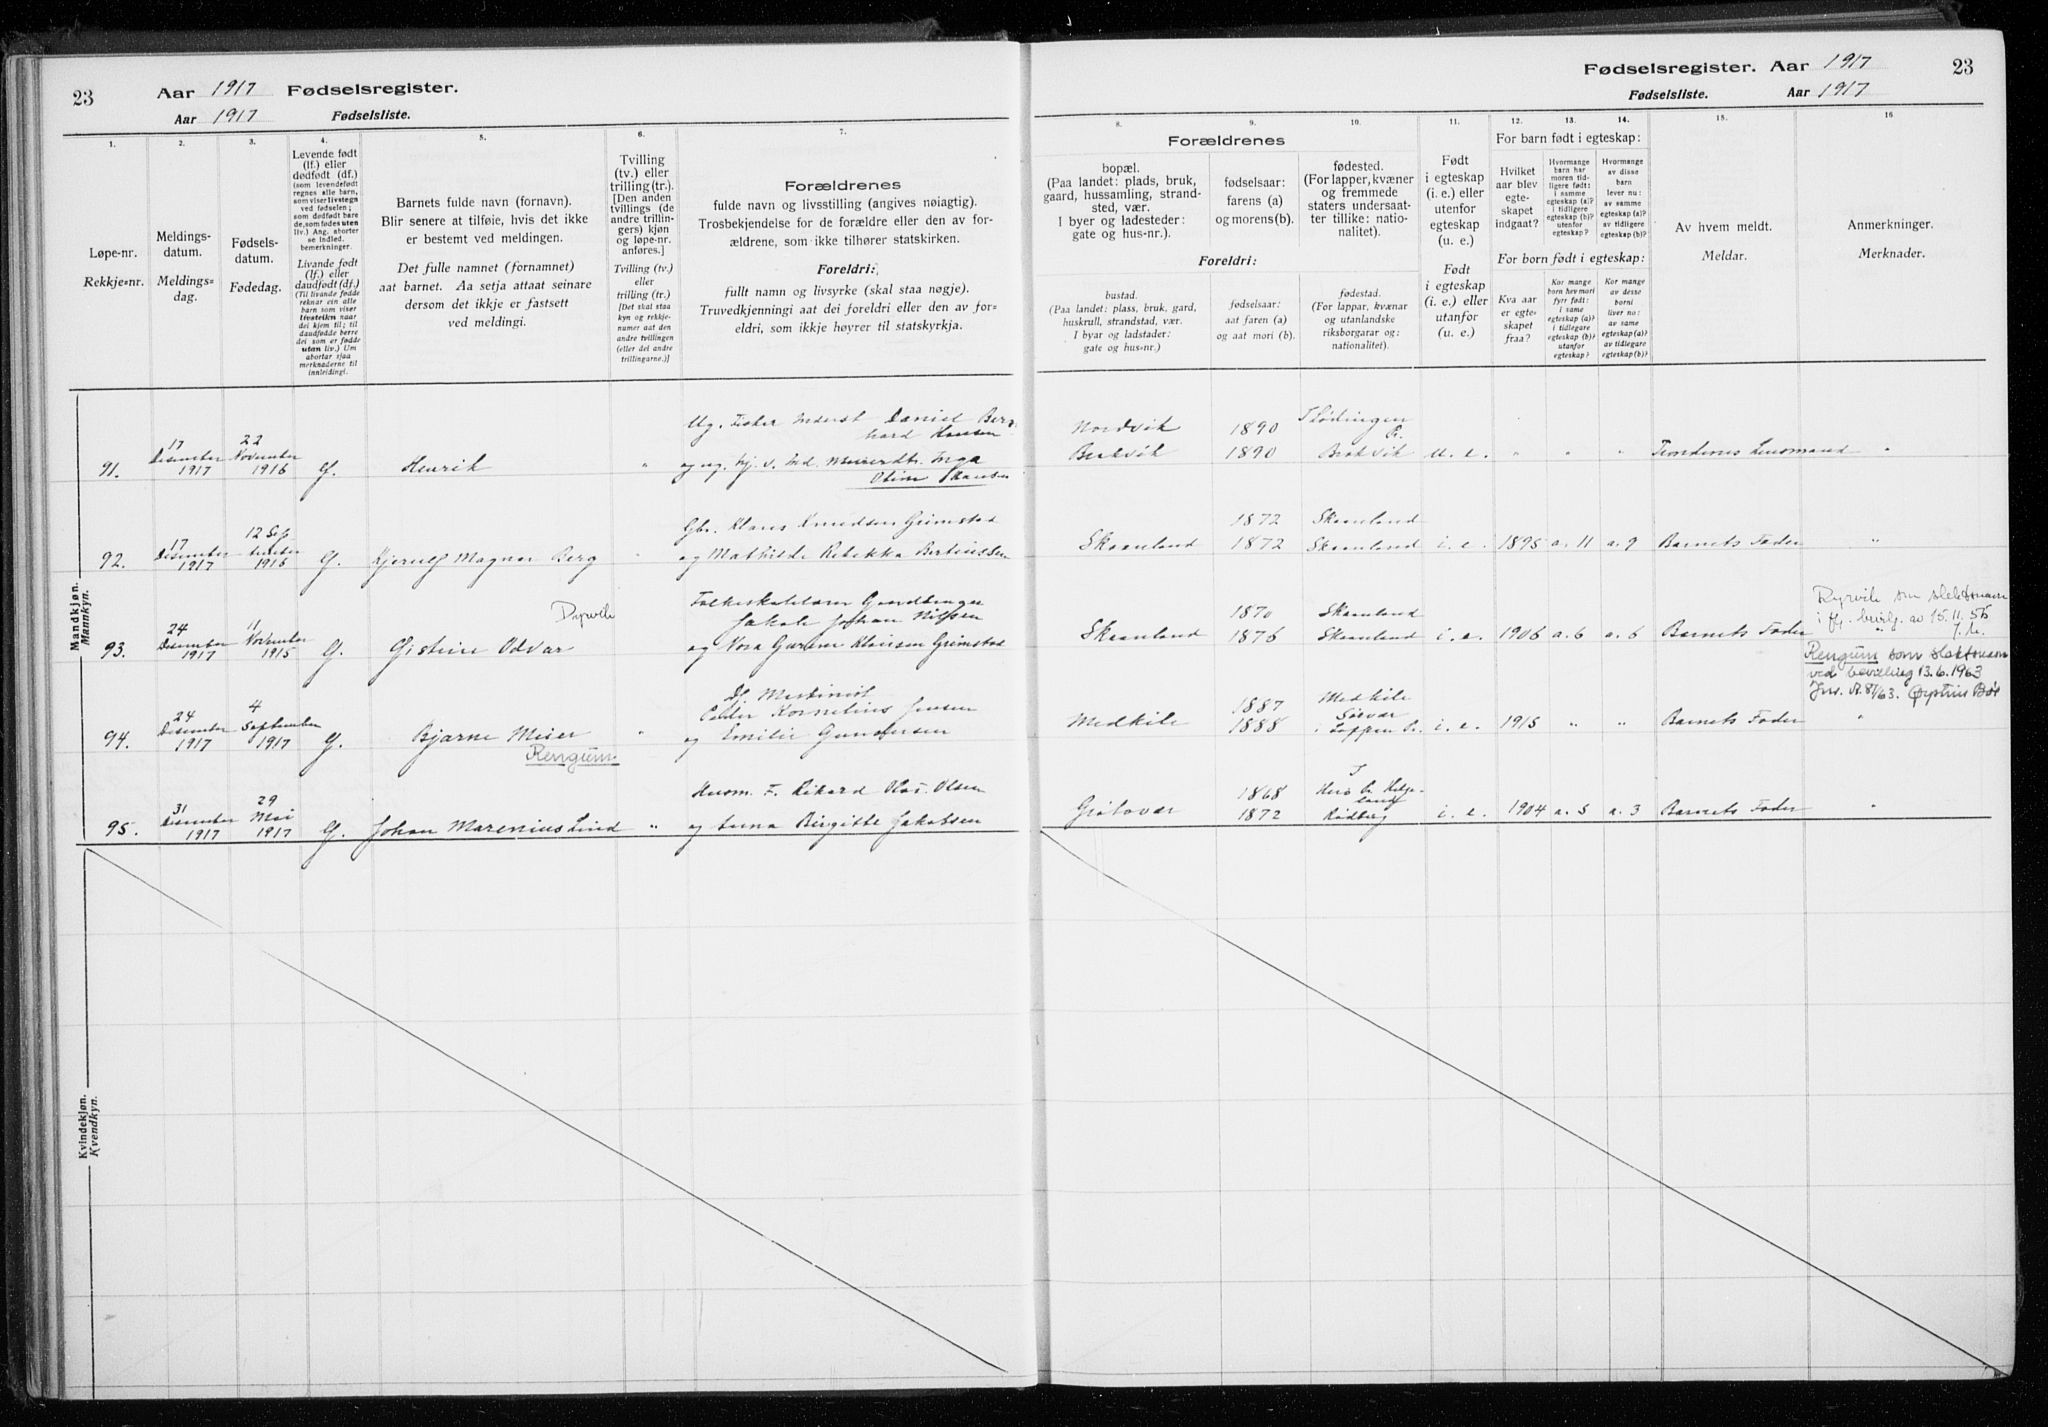 23
Aar 1917 Fødselsregister.
Aar 1917 Fødselsliste.
1.
2.
3.
4.
5.
6.
7.
Løpe-nr.
Rekkje-nr.
Meldings-
datum.
Meldings-
dag.
Fødsels-
datum.
Fødedag.
Levende født
(lf.) eller
dødfødt (df.)
(som levendefødt
regnes alle barn,
som viser livstegn
ved fødselen;
som dødfødt bare
de, som fødes uten
liv.) Ang. aborter
se indled.
bemerkninger.
Livande født
(lf.) eller
daudfødt (df.)
(Til livande fødde
reknar ein alle
barn som viser
livsteikn naar
dei kjem til; til
daudfødde berre
dei som er fødde
utan liv.) Um
abortar sjaa
merknaderne til
innleidingi.
Barnets fulde navn (fornavn).
Blir senere at tilføie, hvis det ikke
er bestemt ved meldingen.
Det fulle namnet (fornamnet)
aat barnet. Aa setja attaat seinare
dersom det ikkje er fastsett
ved meldingi.
Tvilling
(tv.) eller
trilling (tr.).
[Den anden
tvillings (de
andre trillin-
gers) kjøn
og løpe-nr.
anføres.]
Tvilling (tv.)
eller
trilling (tr.)
[Det skal staa
kyn og rekkje-
numer aat den
andre tvillingen
(eller dei andre
trillingarne.)]
Forældrenes
fulde navn og livsstilling (angives nøiagtig).
Trosbekjendelse for de forældre eller den av for-
ældrene, som ikke tilhører statskirken.
Foreldri:
fullt namn og livsyrke (skal staa nøgje).
Truvedkjenningi aat dei foreldri eller den av for-
eldri, som ikkje høyrer til statskyrkja.
Mandkjøn.
Mannkyn.
91.
17
Desember
1917
22
November
1916
Henrik
"
Ug. Fisker Daniel Bern-
hard Hansen
Inga
92.
17
Desember
1917
12 Sep-
tember
1916
Kjerulf Magnar Berg
"
Gbr. Klaus Knudsen Grimstad
og Mathilde Rebekka Bertinssen
93.
24
Desember
1917
11
November
1915
Odvar
Dyrvik
Jakob Johan Nilsen
og Nora Klausen Grimstad
94.
24
Desember
1917
4
September
1917
Bjarne Meier
Rengum
"
Kornelius Jensen
og Emilie Gundersen
95.
31
Desember
1917
29
Mai
1917
Johan Marenius Lind
"
Husm. F. Rikard Olsen
og Anna Birgitte Jakobsen
Kvindekjøn.
Kvendkyn.
Fødselsregister. Aar 1917
23
Fødselsliste. Aar 1917
8.
9.
10.
11.
12.
13.
14.
15.
16
Forældrenes
bopæl.
(Paa landet: plads, bruk,
gaard, hussamling, strand-
sted, vær.
I byer og ladesteder:
gate og hus-nr.).
fødselsaar:
farens (a)
og morens (b).
fødested.
(For lapper, kvæner
og fremmede
staters undersaat-
ter tillike: natio-
nalitet).
Foreldri:
bustad.
(Paa landet: plass, bruk, gard,
huskrull, strandstad, vær.
I byar og ladstader:
gate og hus-nr.)
fødselsaar:
aat faren (a)
og aat mori (b).
fødestad.
(For lappar, kvænar
og utanlandske
riksborgarar og:
nationalitet).
Født
i egteskap
(i. e.) eller
utenfor
egteskap
(u. e.)
Født
i egteskap
(i. e.) eller
utanfor
(u. e.)
For barn født i egteskap:
Hvilket
aar blev
egte-
skapet
indgaat?
Hvormange
barn har
moren tid-
ligere født:
i samme
egteskap (a)?
i tidligere
egteskap (b)?
utenfor
egteskap?
Hvormange
av disse
barn
lever nu:
av samme
egteskap (a)?
av tidligere
egteskap (b)?
For born født i egteskap:
Kva aar
er egte-
skapet
fraa?
Kor mange
born hev mori
fyrr født:
i same
egteskap (a)?
i tidlegare
egteskap (b)?
utanfor
egteskap?
Kor mange
av desse
borni
liver no:
av same
egteskap (a)?
av tidlegare
egteskap (b)?
Av hvem meldt.
Meldar.
Anmerkninger.
Merknader.
Nordvik 1890
1890 u. e. " " " Lensmand "
1872 Skaanland
Skaanland 1872 Skaanland i. e. 1895 a. 11 a. 9 Barnets Fader "
1870 Skaanland
Skaanland 1876 Skaanland i. e. 1906 a. 6 a. 6 Barnets Fader "
som slektsnavn
av 15.11.55
Rengum som slektsnavn
ved bevilling 13.6.1963
1887
Medkile 1888 i Loppen i. e. 1915 " " Barnets Fader "
1868
Grøtavær 1872 i. e. 1904 a. 3 a. 3 Barnets Fader "